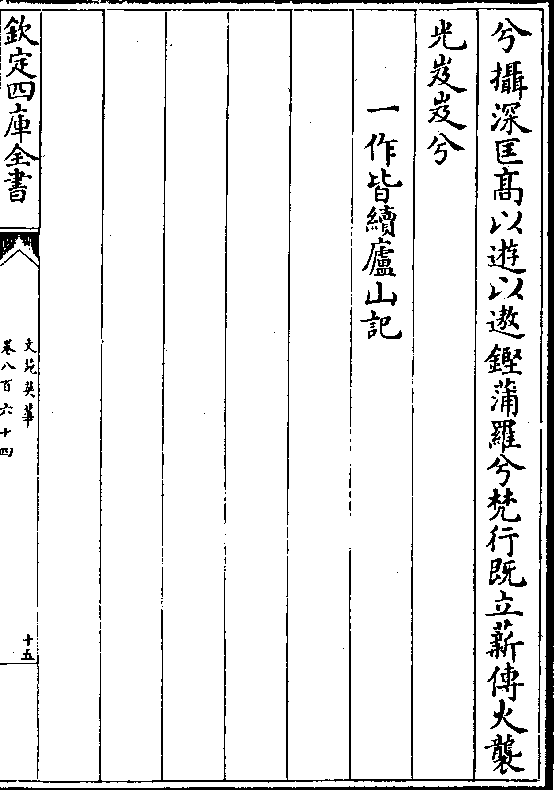 兮攝深匡高以遊以遨鏗蒲羅兮梵行既立薪傳火襲
光岌岌兮
一作皆續廬山記
欽定四庫全書
文苑英華
卷八百六十四
十五